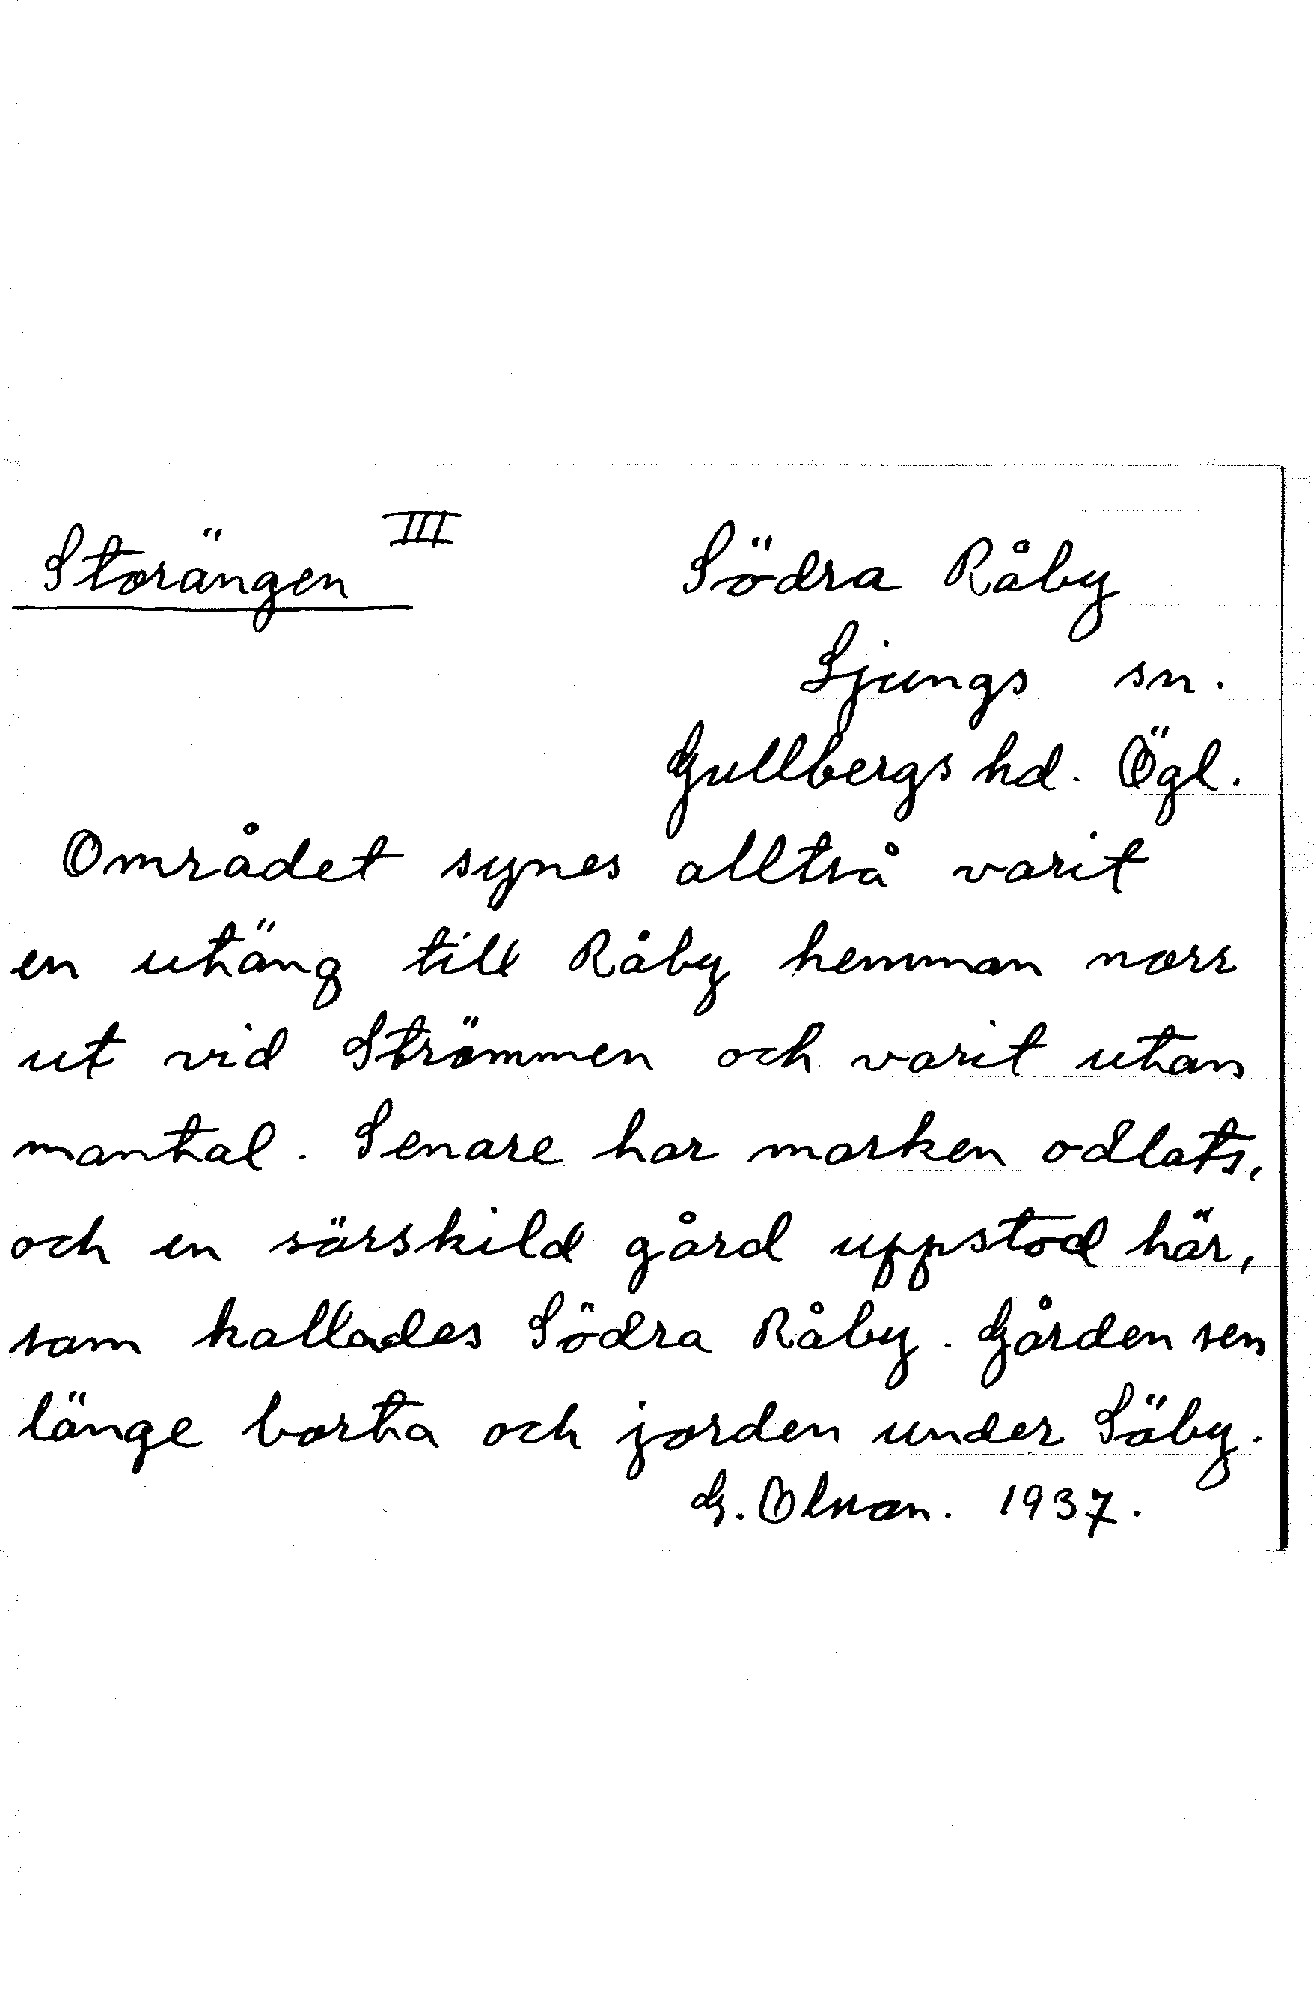 Storängen III Södra Råby
Ljungs sn.
Gullbergs hd. Ögl.
Området synes alltså varit
en utäng till Råby hemman norr
ut vid Strömmen och varit utan
mantal. Senare har marken odlats,
och en särskild gård uppstod här,
som kallades Södra Råby. Gården sen
länge borta och jorden under Säby.
G. Olsson. 1937.